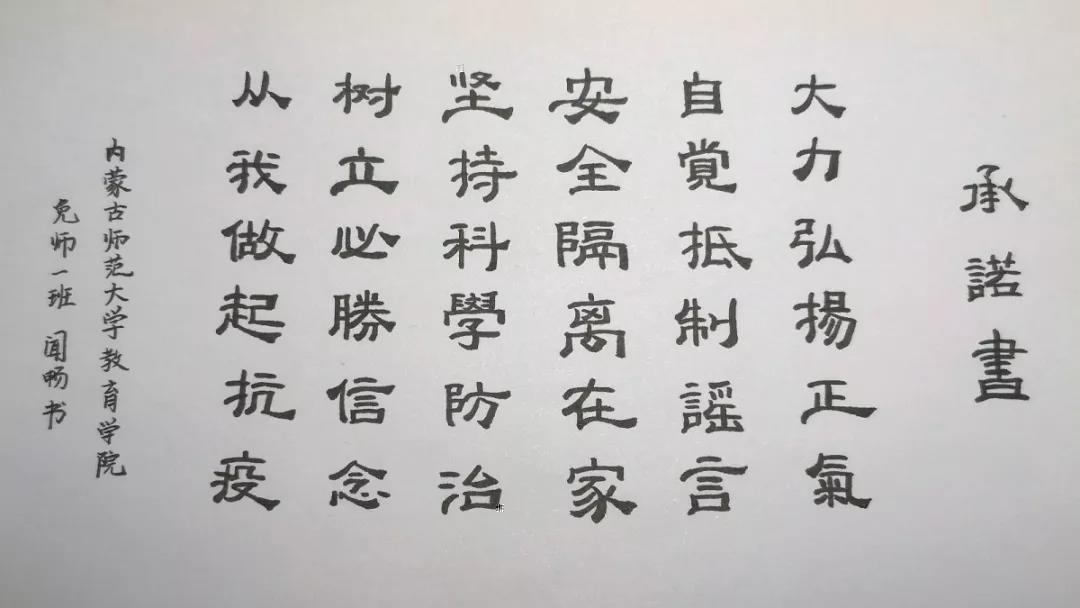 承諾書
大力弘揚正氣
自覚抵制謡言
安全隔离在家
坚持科學防治
树立必勝信念
从我做起抗疫
内蒙古师范大学教育学院
免师一班 闻畅书